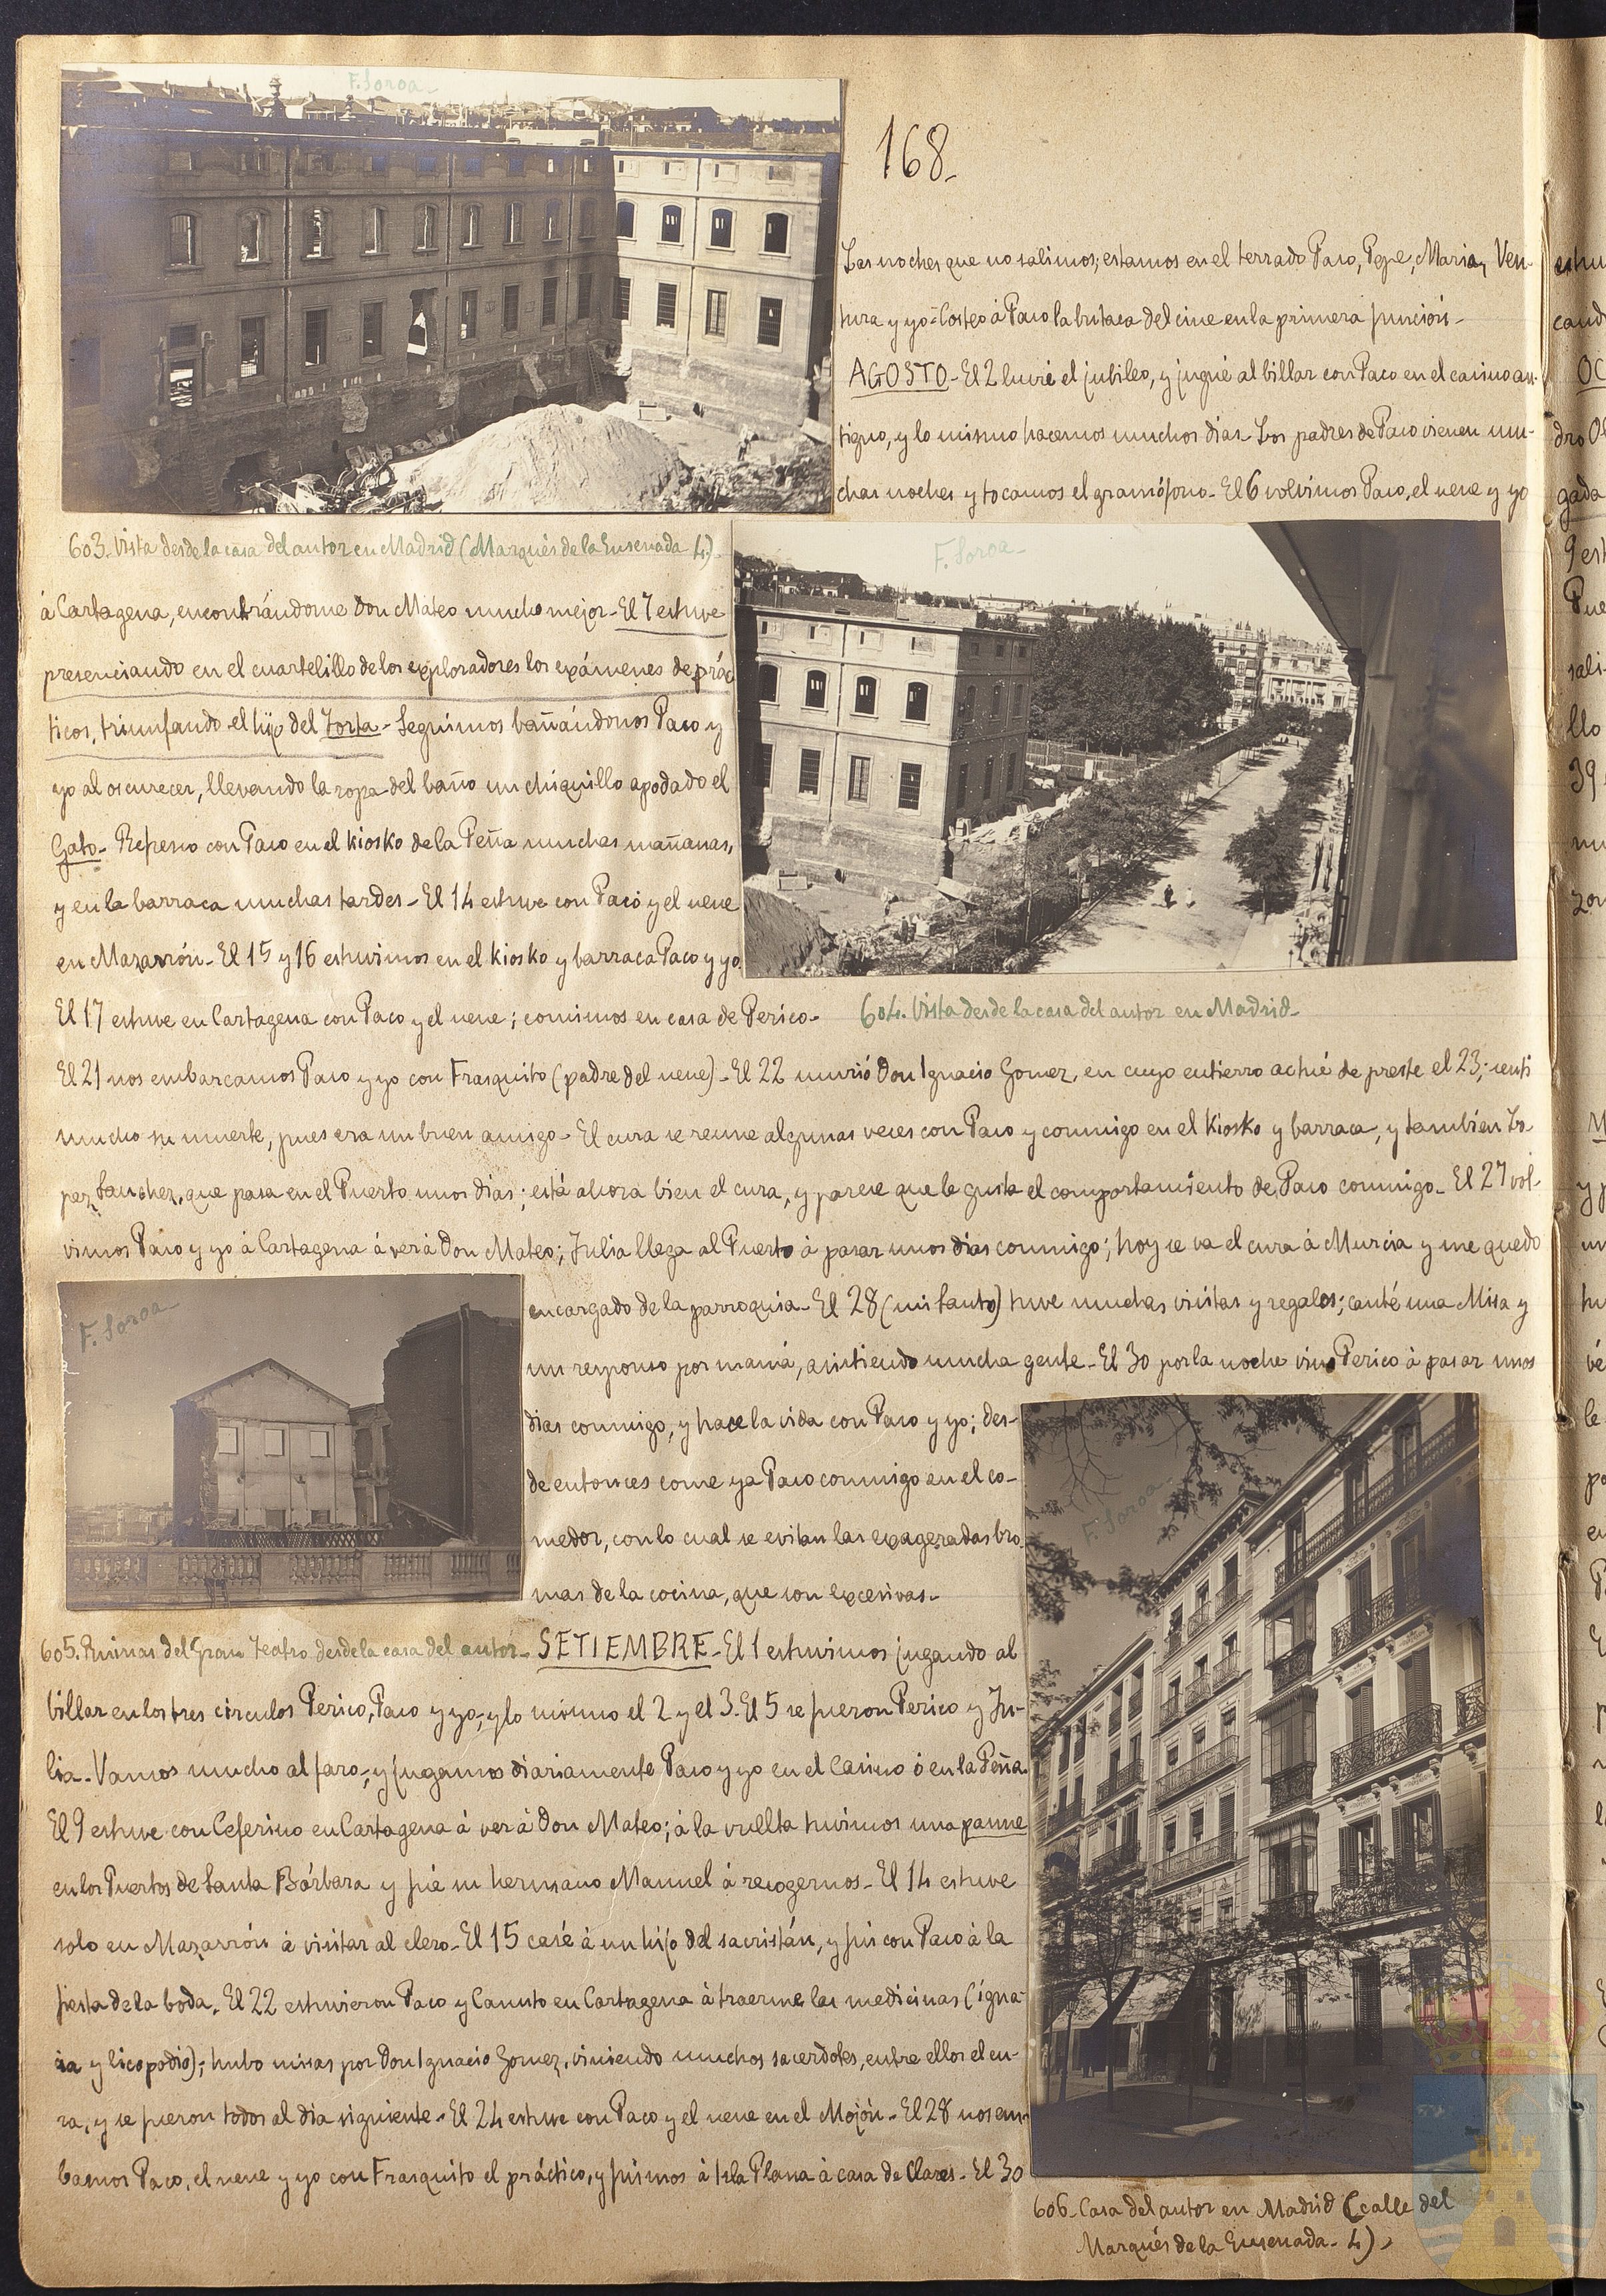 F. Soroa-
168-
Las noches que no salimos, estamos en el terrado Paco, Pepe, Maria, Ven-
tura y yo- Costeo á Paco la butaca del cine en la primera función-
AGOSTO- El 2 lucré el jubileo, y jugué al billar con Paco en el casino an-
tiguo, y lo mismo hacemos muchos dias- Los padres de Paco vienen mu-
chas noches y tocamos el gramófono- El 6 volvimos Paco, el nene y yo
603. Vista desde la casa del autor en Madrid (Marqués de la Ensenada 4.)
F. Soroa-
á Cartagena, encontrándome Don Mateo mucho mejor- El 7 estuve
presenciando en el cuartelillo de los exploradores los exámenes de prác
ticos, triunfando el hijo del Torta- Seguimos bañándonos Paco y
yo al oscurecer, llevando la ropa del baño un chiquillo apodado el
Gato- Refresco con Paco en el kiosko de la Peña muchas mañanas,
y en la barraca muchas tardes- El 14 estuve con Paco y el nene
en Mazarrón- El 15 y 16 estuvimos en el kiosko y barraca Paco y yo.
El 17 estuve en Cartagena con Paco y el nene; comimos en casa de Perico-
604. Vista desde la casa del autor en Madrid-
El 21 nos embarcamos Paco y yo con Frasquito (padre del nene)- El 22 murió Don Ignacio Gomez, en cuyo entierro actué de preste el 23; sentí
mucho su muerte, pues era un buen amigo- El cura se reune algunas veces con Paco y conmigo en el kiosko y barraca, y tambien
Sanchez, que pasa en el Puerto unos dias; está ahora bien el cura, y parece que le gusta el comportamiento de Paco conmigo- El 27 vol-
vimos Paco y yo á Cartagena á ver á Don Mateo; Julia llega al Puerto á pasar unos dias conmigo; hoy se va el cura á Murcia y me quedo
F. Soroa-
encargado de la parroquia- El 28 (mi Santo) tuve muchas visitas y regalos; canté una Misa y
un responso por mamá, asistiendo mucha gente- El 30 por la noche vino Perico á pasar unos
dias conmigo, y hace la vida con Paco y yo; des-
de entonces come ya Paco conmigo en el co-
medor, con lo cual se evitan las exageradas bro
mas de la cocina, que son excesivas-
F. Soroa-
605. Ruinas del Gran Teatro desde la casa del autor-
SETIEMBRE- El 1 estuvimos jugando al
billar en los tres circulos Perico, Paco y yo, y lo mismo el 2 y el 3- El 5 se fueron Perico y Ju-
lia- Vamos mucho al faro, y jugamos diariamente Paco y yo en el Casino ó en la Peña.
El 9 estuve con Ceferino en Cartagena á ver á Don Mateo; á la vuelta tuvimos una panne
en los Puertos de Santa Bárbara y fué su hermano Manuel á recogernos- El 14 estuve
solo en Mazarrón á visitar al clero- El 15 casé á un hijo del sacristán, y fui con Paco á la
fiesta de la boda. El 22 estuvieron Paco y Canuto en Cartagena á traerme las medicinas (igna-
cia y licopodio); hubo misas por Don Ignacio Gomez, viniendo muchos sacerdotes, entre ellos el cu-
ra, y se fueron todos al dia siguiente- El 24 estuve con Paco y el nene en el Mojón- El 28 nos em-
bamos Paco, el nene y yo con Frasquito el práctico, y fuimos á Isla Plana á casa de Clares- El 30
606- Casa del autor en Madrid (calle del
Marqués de la Ensenada- 4)-